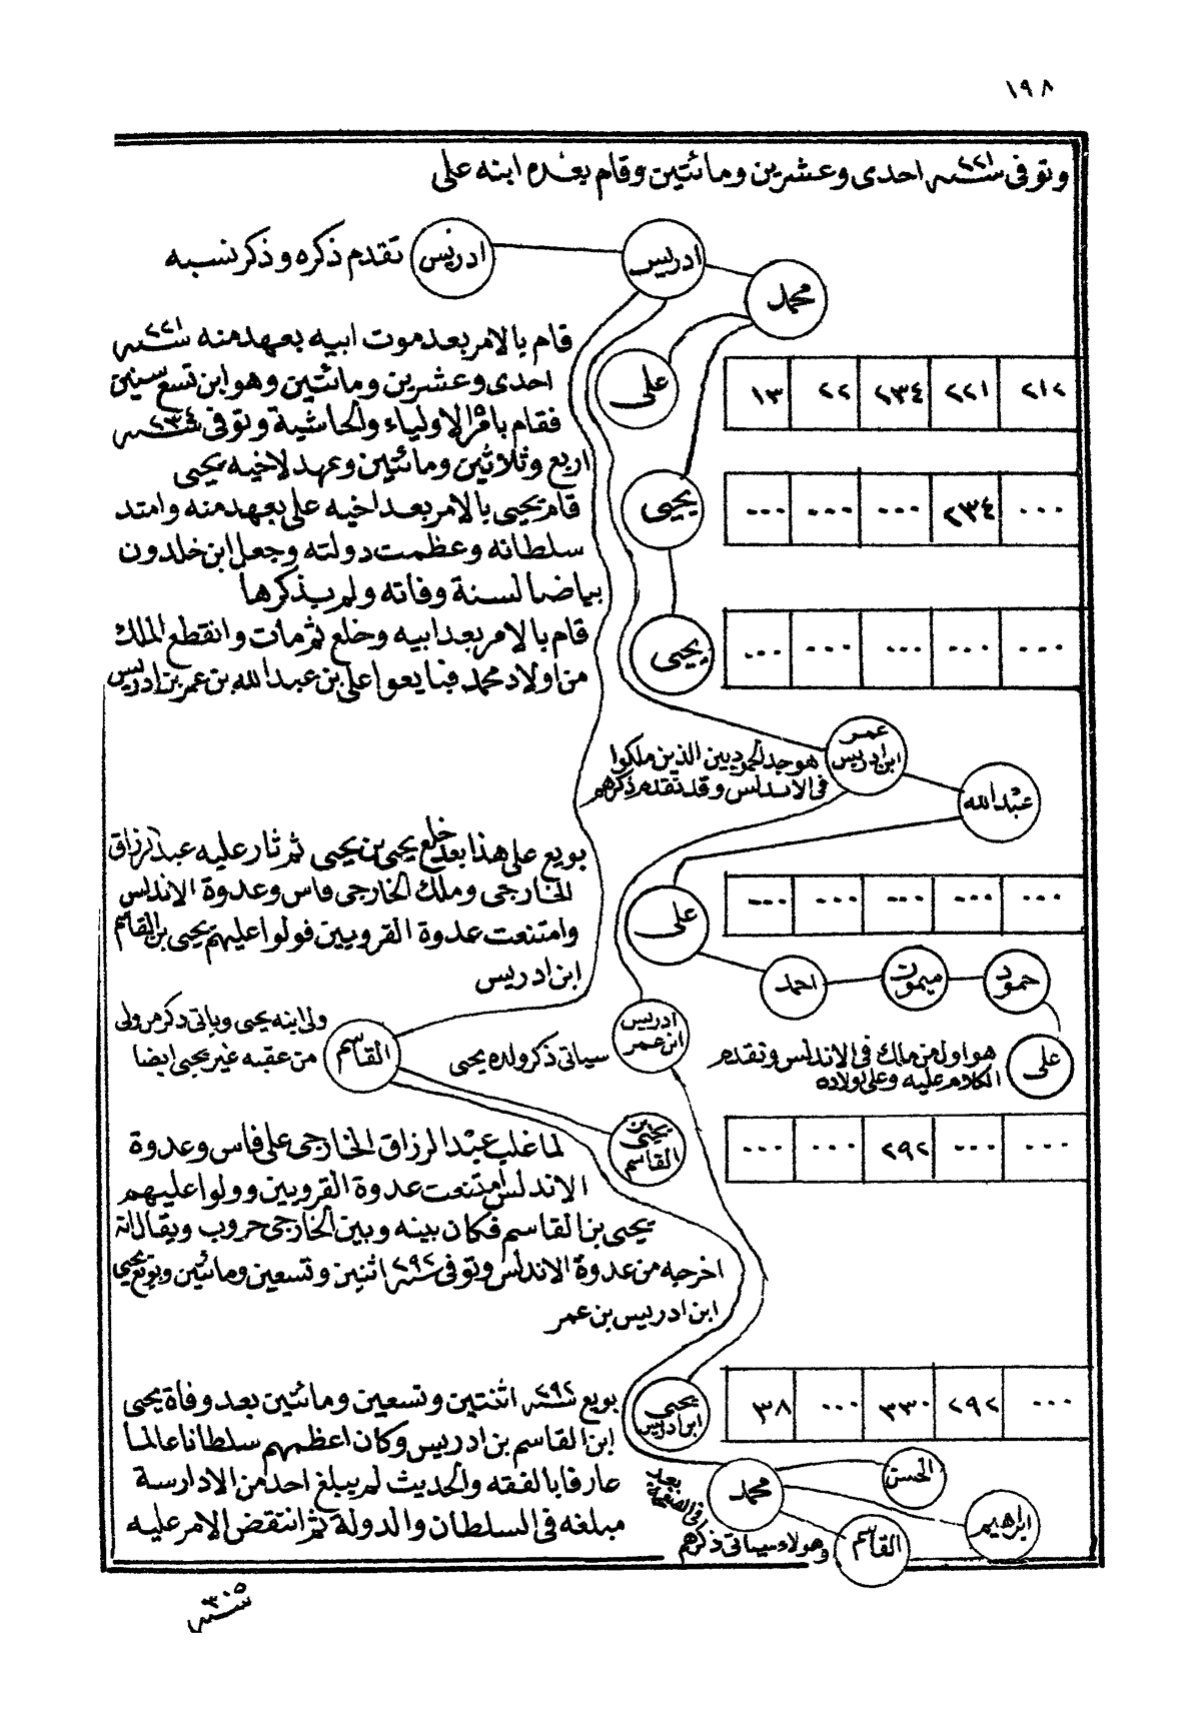 ١٩٨
وتوفى سنة ٢٢١ احدى وعشرين ومائتين وقام بعده ابنه على
محمد
ادريس
ادريس
تقدم ذكره وذكر نسبه
٢١٢ ٢٢١ ٢٣٤ ٢٢ ١٣
على
قام بالامر بعد موت ابيه بعهد منه سنة ٢٢١
احدى وعشرين ومائتين وهو ابن تسع سنين
فقام بامره الاولياء والحاشية وتوفى سنة ٢٣٤
اربع وثلاثين ومائتين وعهد لاخيه يحيى
... ٢٣٤ ... ... ...
يحيى
قام يحيى بالامر بعد اخيه على بعهد منه وامتد
سلطانه وعظمت دولته وجعل ابن خلدون
بياضا لسنة وفاته ولم يذكرها
... ... ... ... ...
يحيى
قام بالامر بعد ابيه وخلع ثم مات وانقطع الملك
من اولاد محمد فبايعوا على بن عبدالله بن عمر بن ادريس
عمر
ابن ادريس
هو جد الحموديين الذين ملكوا
فى الاندلس وقد تقدم ذكرهم
عبدالله
... ... ... ... ...
على
بويع على هذا بعد خلع يحيى بن يحيى ثم ثار عليه عبدالرزاق
الخارجى وملك الخارجى فاس وعدوة الاندلس
وامتنعت عدوة القرويين فولوا عليهم يحيى بن القاسم
ابن ادريس
حمود
ميمون
احمد
على
هو اول من ملك فى الاندلس وتقدم
الكلام عليه وعلى اولاده
ادريس
ابن عمر
سياتى ذكر ولده يحيى
القاسم
ولى ابنه يحيى وياتى ذكر من ولى
من عقبه غير يحيى ايضا
... ... ٢٩٢ ... ...
يحيى بن
القاسم
لما غلب عبد الرزاق الخارجى على فاس وعدوة
الاندلس امتنعت عدوة القرويين وولوا عليهم
يحيى بن القاسم فكان بينه وبين الخارجى حروب ويقال انه
اخرجه من عدوة الاندلس وتوفى سنة ٢٩٢ اثنين وتسعين ومائتين وبويع يحيى
ابن ادريس بن عمر
... ٢٩٢ ٣٣٠ ... ٣٨
يحيى
ابن ادريس
بويع سنة ٢٩٢ اثنتين وتسعين ومائتين بعد وفاة يحيى
ابن القاسم بن ادريس وكان اعظمهم سلطانا عالما
عارفا بالفقه والحديث لم يبلغ احد من الادارسة
مبلغه فى السلطان والدولة ثم انتقض الامر عليه
الحسن
محمد
ابراهيم
القاسم
وهولاء سياتى ذكرهم
فى الصفحة
بعد
سنة ٣٠٥